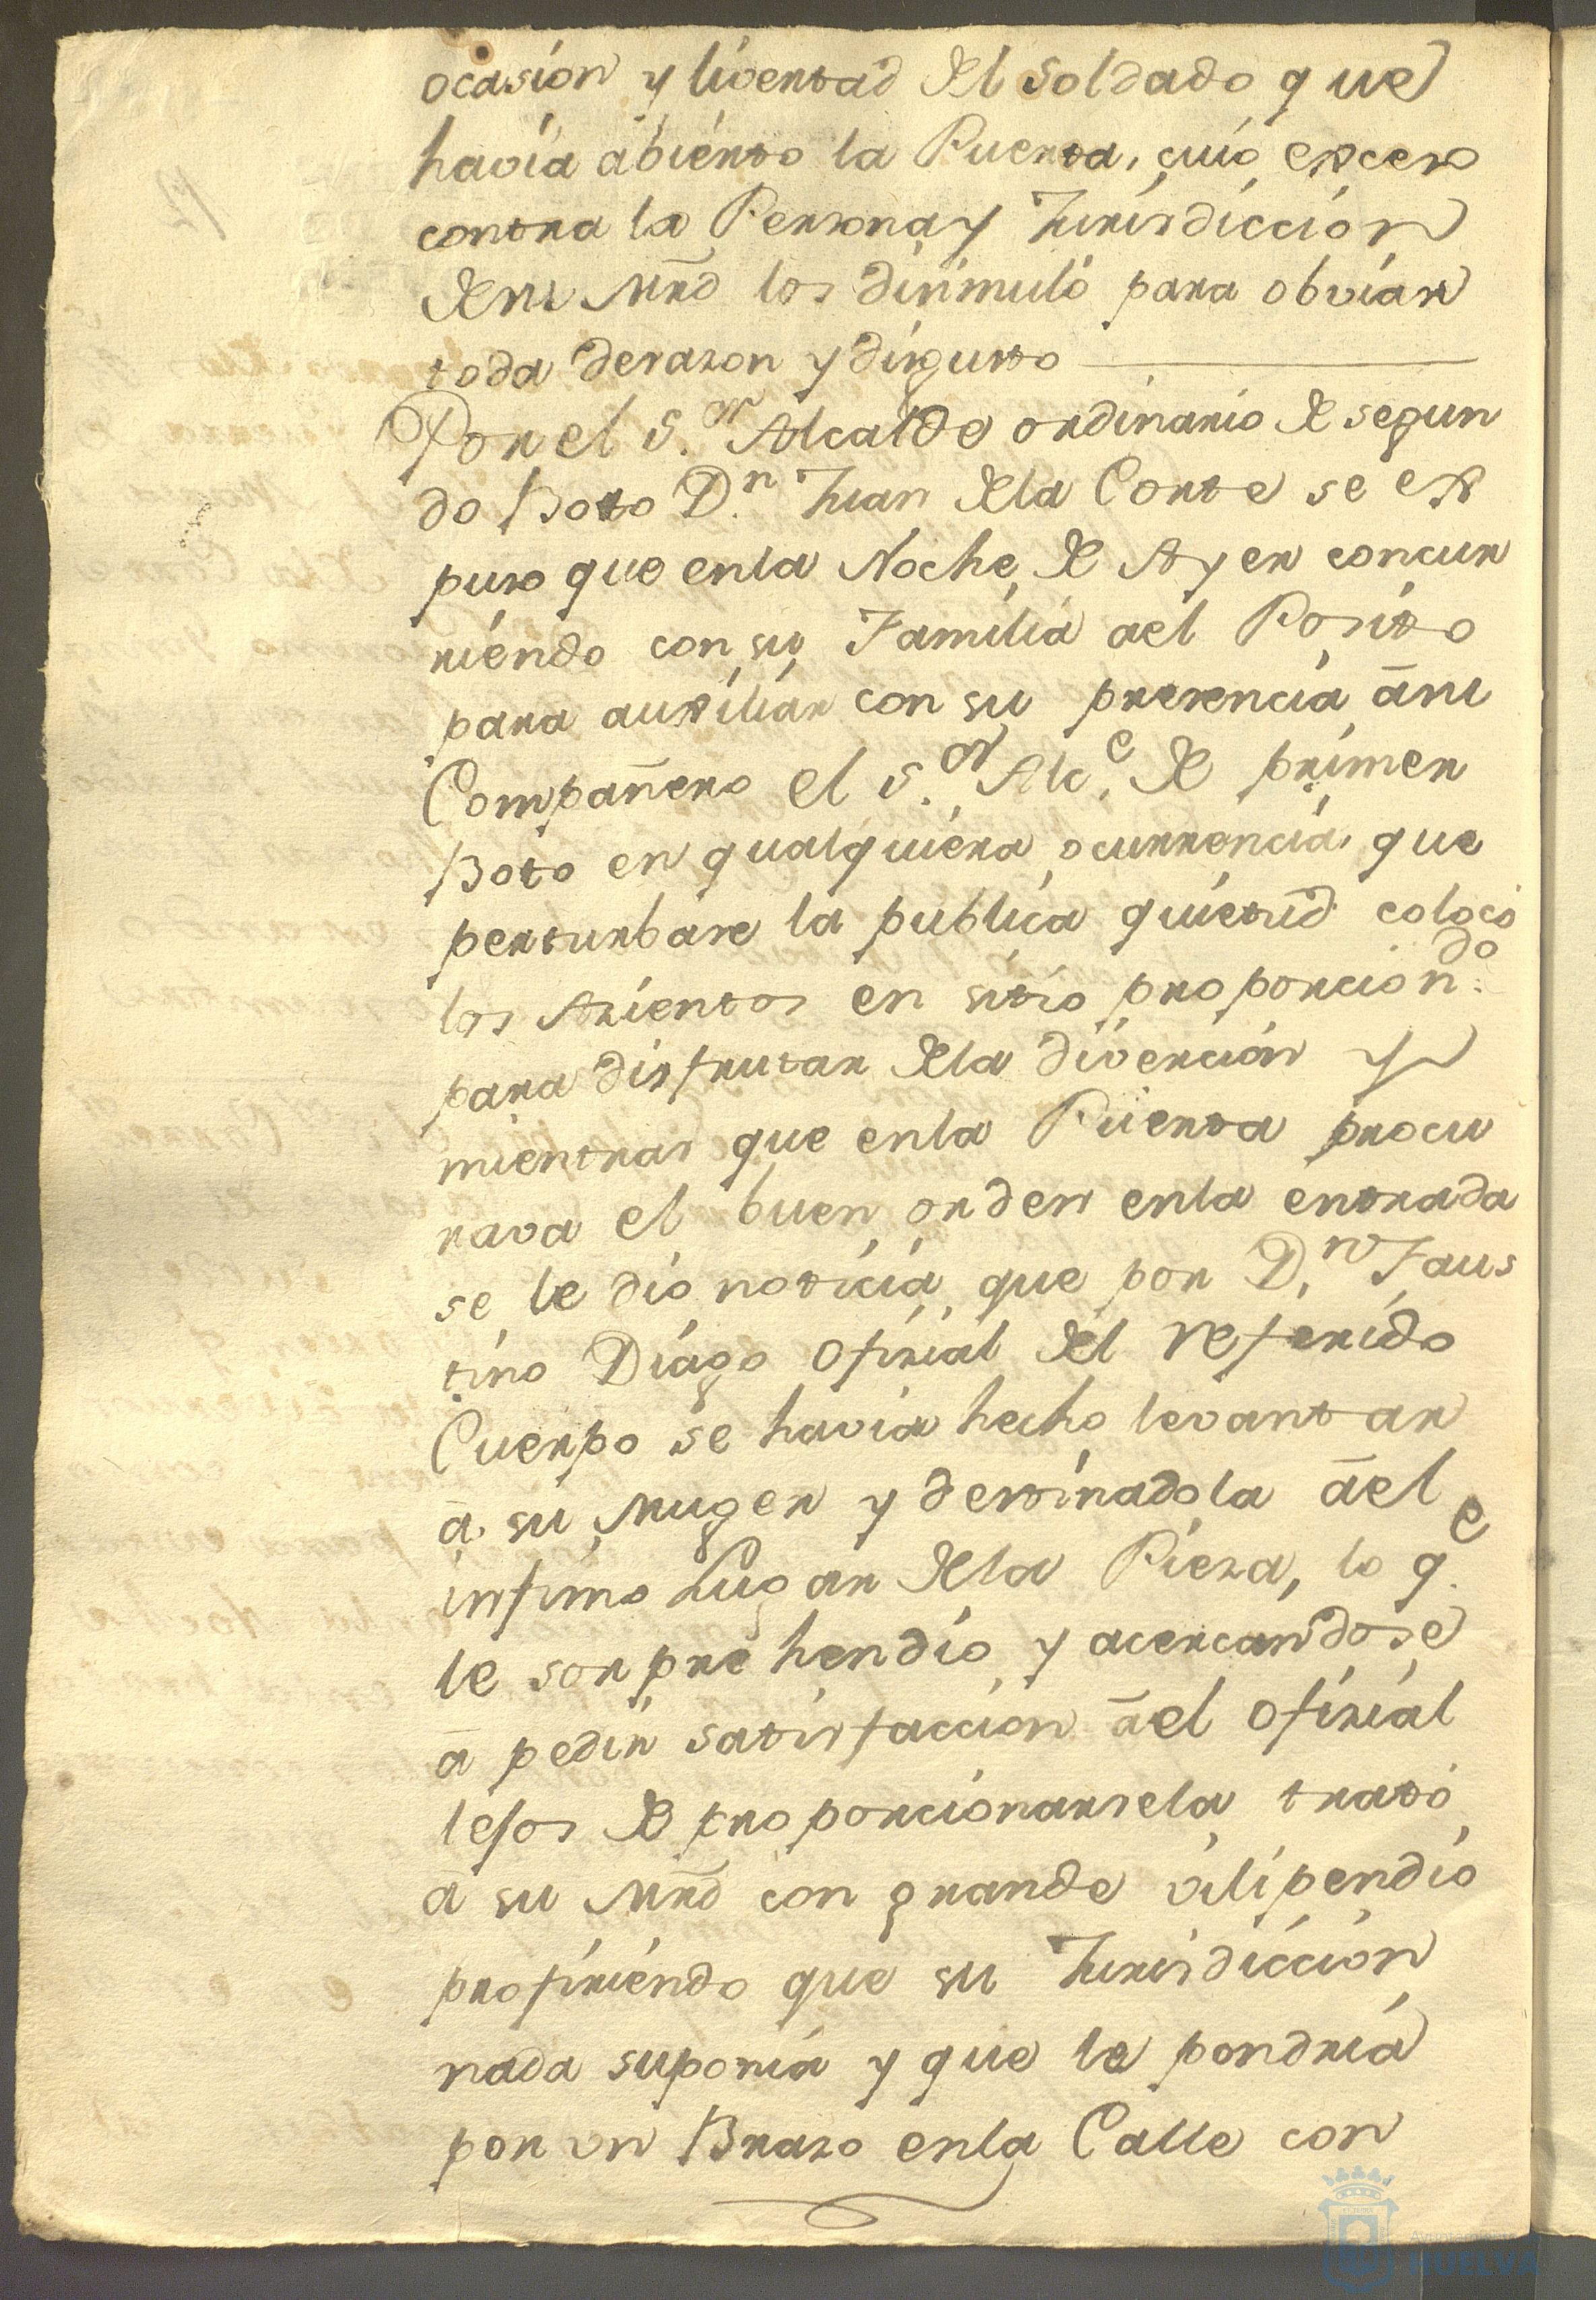 ocasion y livertad del Soldado que
havia abierto la Puerta, cuio exceso
contra la Persona y Jurisdiccion
de su Mrd los disimuló para obviar
toda desazon y disgusto
Por el S.or Alcalde ordinario de segun
do Boto D.n Juan de la Corte se ex
puso que enla Noche de Ayer concur
riendo con su Familia ael Posito
para auxiliar con su presencia a su
Compañero el S.or Alc.e de primer
Boto en qualquiera ocurrencia que
perturbase la publica quietud colocó
los Asientos en sitio proporcion.do
para disfrutar dela divercion y
mientras que enla Puerta procu
rava el buen orden enla entrada
se le dio noticia que por D.n Faus
tino Diago Ofizial del referido
Cuerpo se havia hecho levantar
a su Muger y destinadola ael
infimo Lugar dela Pieza, lo q.e
le sorprehendio y acercandose
a pedir satisfaccion ael Ofizial
lejos de proporcionarsela trató
a su Mrd con grande vilipendio
profiriendo que su Jurisdiccion
nada suponia y que le pondria
por un Brazo enla Calle con
Ayuntamiento
HUELVA